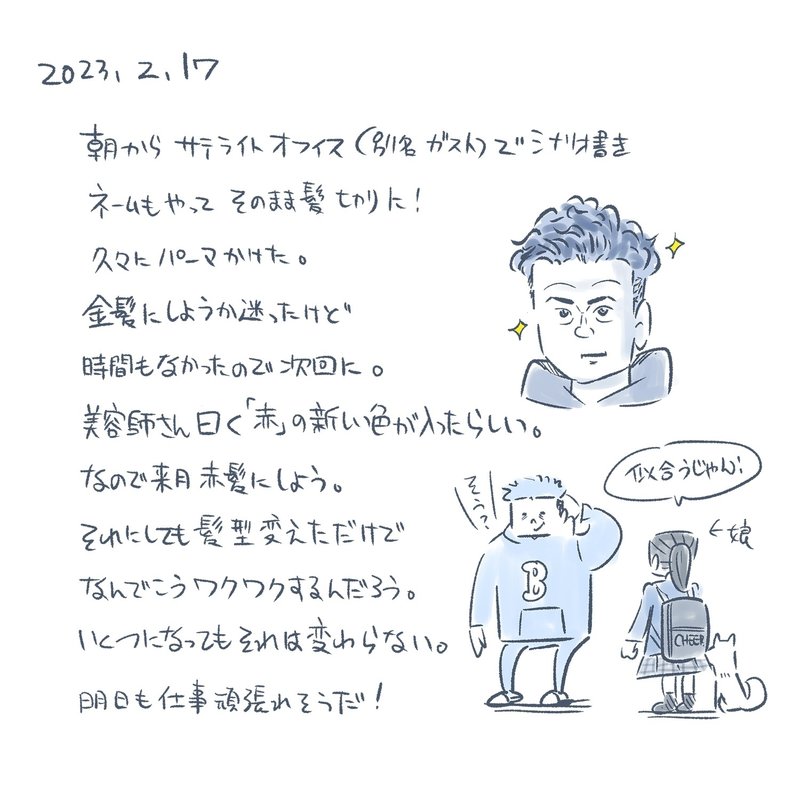 2023.2.17
朝から サテライトオフィス(別名 ガスト)でシナリオ書き
ネームもやって そのまま髪切りに!
久々にパーマかけた。
金髪にしようか迷ったけど
時間もなかったので次回に。
美容師さん曰く「赤」の新しい色が入ったらしい。
なので来月赤髪にしよう。
それにしても髪型変えただけで
なんでこうワクワクするんだろう。
いくつになってもそれは変わらない。
明日も仕事頑張れそうだ!
似合うじゃん!
そう?
←娘
B
CHEER